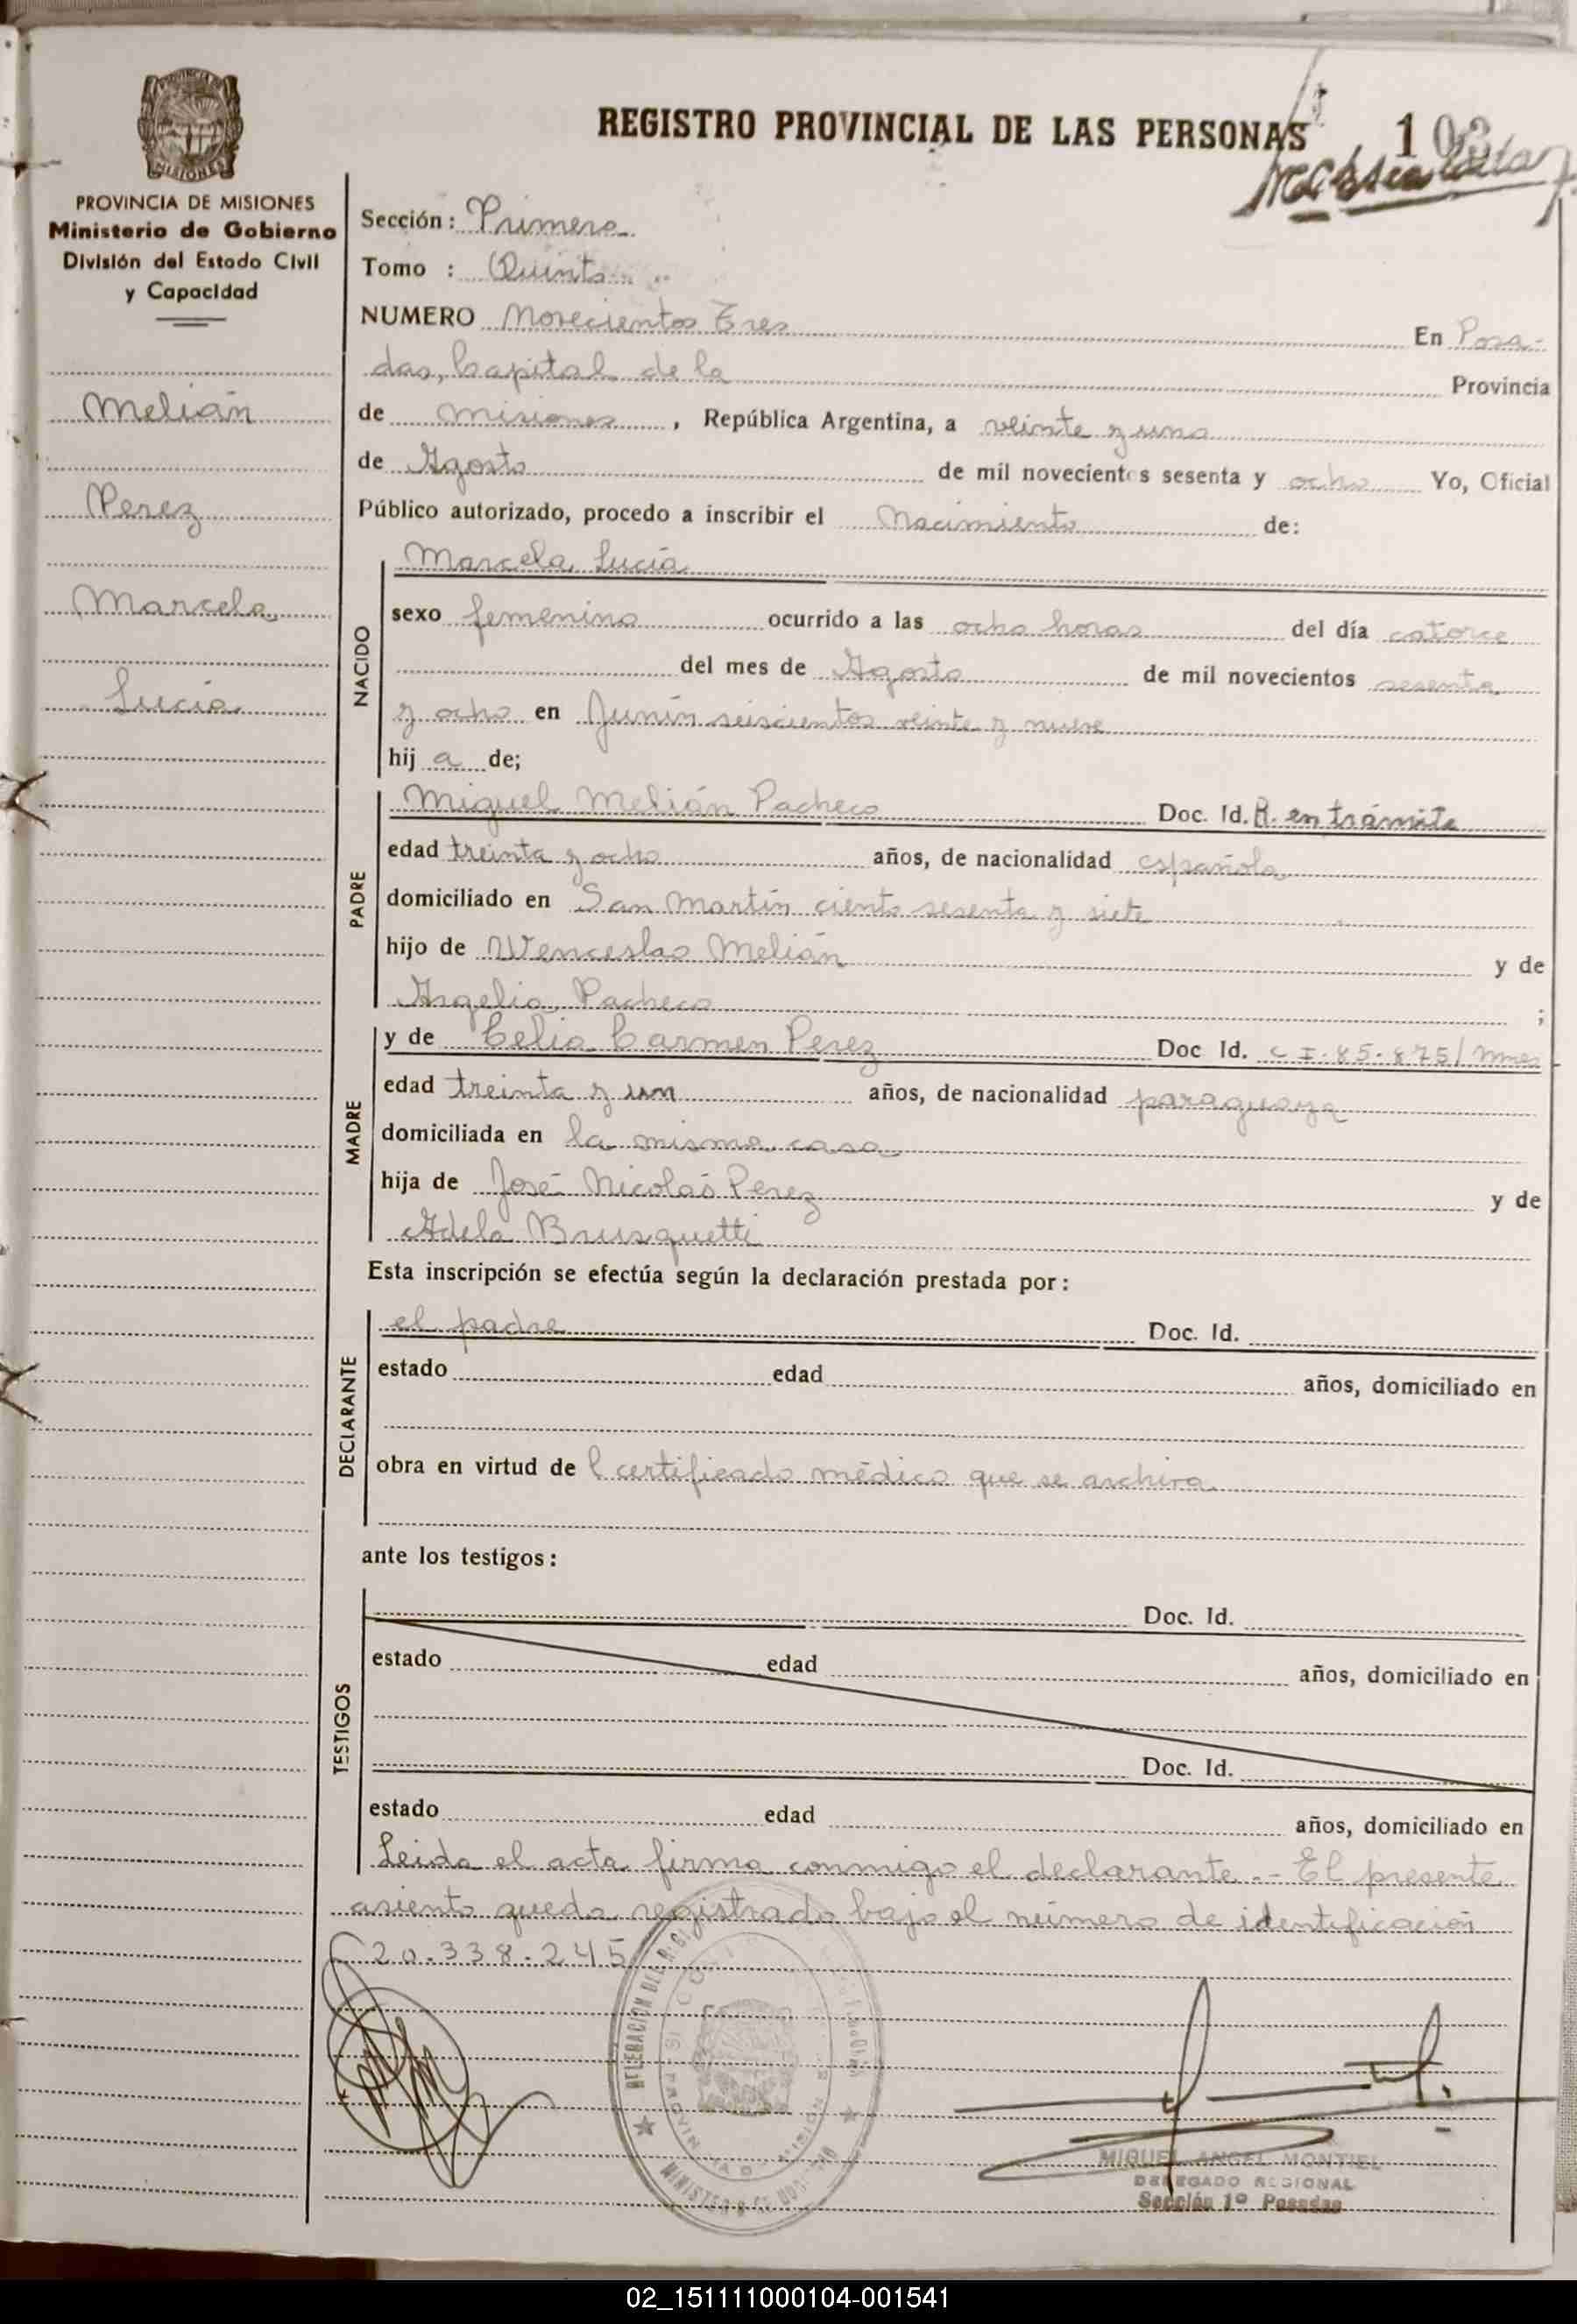 REGISTRO PROVINCIAL DE LAS PERSONAS
PROVINCIA DE MISIONES
Ministerio de Gobierno
División del Estado Civil
y Capacidad
Melián
Perez
Marcela
Lucía
Sección: Primera
Tomo : Quinto
NUMERO Novecientos Tres En Posa-
das, Capital de la Provincia
de Misiones, República Argentina, a veinte y uno
de Agosto de mil novecientos sesenta y ocho Yo, Oficial
Público autorizado, procedo a inscribir el Nacimiento de:
NACIDO
Marcela Lucía
sexo femenino ocurrido a las ocho horas del día catorce
del mes de Agosto de mil novecientos sesenta
y ocho en Junín seiscientos veinte y nueve
hij a de;
PADRE
Miguel Melián Pacheco Doc. Id. R. en trámite
edad treinta y ocho años, de nacionalidad española
domiciliado en San Martín ciento sesenta y siete
hijo de Wenceslao Melián y de
Argelia Pacheco ;
MADRE
y de Celia Carmen Perez Doc Id. C I. 85.875/Mnes
edad treinta y un años, de nacionalidad paraguaya
domiciliada en la misma casa
hija de José Nicolás Perez y de
Adela Brusquetti
Esta inscripción se efectúa según la declaración prestada por:
DECLARANTE
el padre Doc. Id.
estado edad años, domiciliado en
obra en virtud de l certificado médico que se archiva
ante los testigos:
TESTIGOS
Doc. Id.
estado edad años, domiciliado en
Doc. Id.
estado edad años, domiciliado en
Leida el acta firma conmigo el declarante.- El presente
asiento queda registrado bajo el número de identificación
20.338.245
MIGUEL ANGEL MONTIEL
DELEGADO REGIONAL
Sección 1º Posadas
02_151111000104-001541